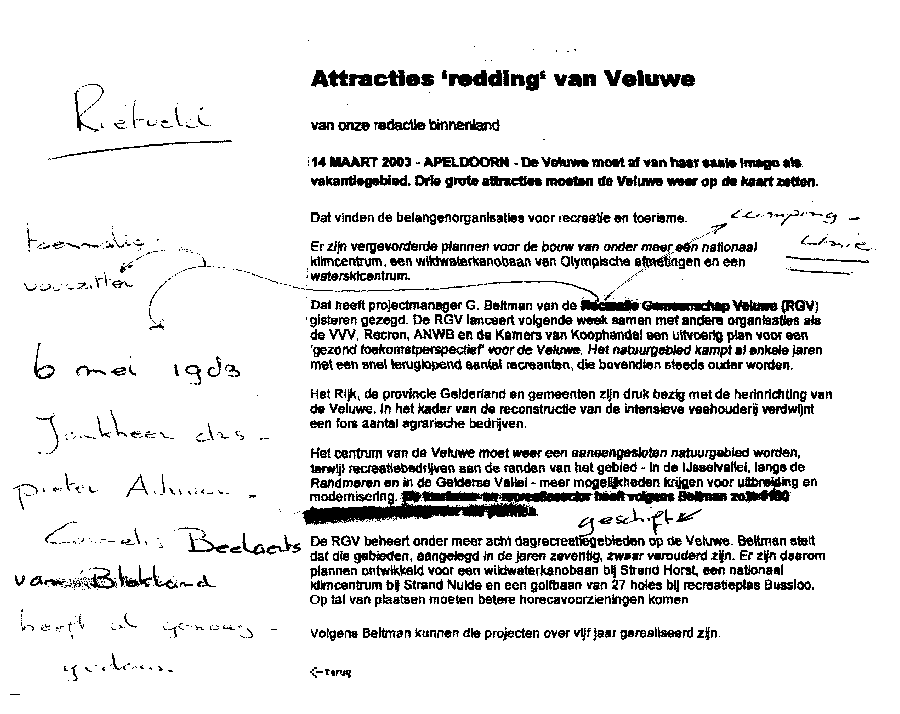 Attracties 'redding' van Veluwe
van onze redactie binnenland
14 MAART 2003 - APELDOORN - De Veluwe moet af van haar saaie imago als
vakantiegebied. Drie grote attracties moeten de Veluwe weer op de kaart zetten.
Dat vinden de belangenorganisaties voor recreatie en toerisme.
Er zijn vergevorderde plannen voor de bouw van onder meer een nationaal
klimcentrum, een wildwaterkanobaan van Olympische afmetingen en een
waterskicentrum.
Dat heeft projectmanager G. Beltman van de Recreatie Gemeenschap Veluwe (RGV)
gisteren gezegd. De RGV lanceert volgende week samen met andere organisaties als
de VVV, Recron, ANWB en de Kamers van Koophandel een uitvoerig plan voor een
'gezond toekomstperspectief' voor de Veluwe. Het natuurgebied kampt al enkele jaren
met een snel teruglopend aantal recreanten, die bovendien steeds ouder worden.
Het Rijk, de provincie Gelderland en gemeenten zijn druk bezig met de herinrichting van
de Veluwe. In het kader van de reconstructie van de intensieve veehouderij verdwijnt
een fors aantal agrarische bedrijven.
Het centrum van de Veluwe moet weer een aaneengesloten natuurgebied worden,
terwijl recreatiebedrijven aan de randen van het gebied - in de IJsselvallei, langs de
Randmeren en in de Gelderse Vallei - meer mogelijkheden krijgen voor uitbreiding en
modernisering. heeft volgens Beltman
geschift
De RGV beheert onder meer acht dagrecreatiegebieden op de Veluwe. Beltman stelt
dat die gebieden, aangelegd in de jaren zeventig, zwaar verouderd zijn. Er zijn daarom
plannen ontwikkeld voor een wildwaterkanobaan bij Strand Horst, een nationaal
klimcentrum bij Strand Nulde en een golfbaan van 27 holes bij recreatieplas Bussloo.
Op tal van plaatsen moeten betere horecavoorzieningen komen
Volgens Beltman kunnen die projecten over vijf jaar gerealiseerd zijn.
<-Terug
Rietveld
toenmalig
voorzitter
6 mei 1983
Jonkheer drs -
pieter Adriaan -
Cornelis Beelaerts
van Blokland
heeft al genoeg -
gedaan
camping -
Unie